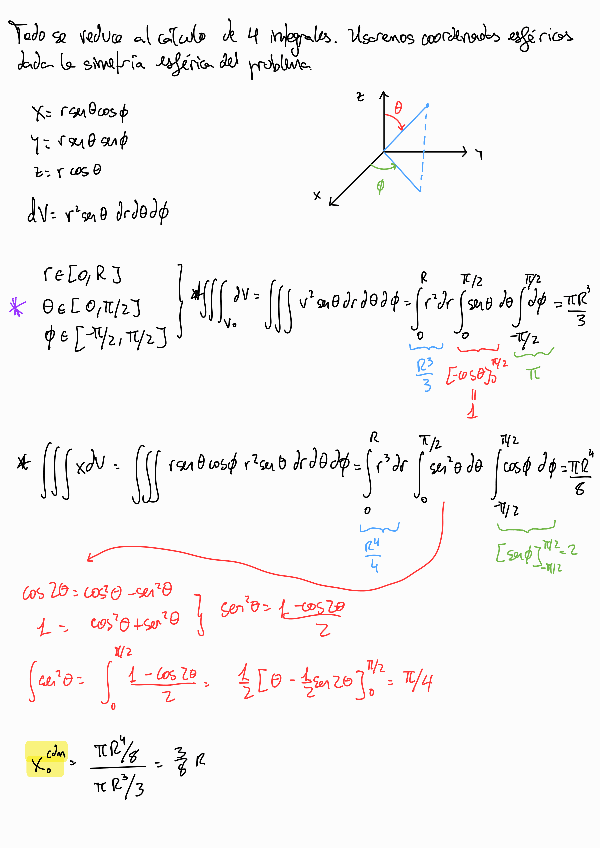 Todo se reduce al cálculo de 4 integrales. Usaremos coordenadas esféricas
dada la simetría esférica del problema.
x = r senθ cosϕ
y = r senθ senϕ
z = r cosθ
dV = r² senθ dr dθ dϕ
z
θ
y
x
ϕ
* r ∈ [0, R]
θ ∈ [0, π/2]
ϕ ∈ [-π/2, π/2]
} * ∭_{V₀} dV = ∭ r² senθ dr dθ dϕ = ∫₀^R r² dr ∫₀^{π/2} senθ dθ ∫_{-π/2}^{π/2} dϕ = πR³/3
R³/3 [-cosθ]₀^{π/2} π
=
1
* ∭ x dV = ∭ r senθ cosϕ r² senθ dr dθ dϕ = ∫₀^R r³ dr ∫₀^{π/2} sen²θ dθ ∫_{-π/2}^{π/2} cosϕ dϕ = πR⁴/8
R⁴/4 [senϕ]_{-π/2}^{π/2} = 2
cos 2θ = cos²θ - sen²θ
1 = cos²θ + sen²θ } sen²θ = (1 - cos 2θ)/2
∫ sen²θ = ∫₀^{π/2} (1 - cos 2θ)/2 = 1/2 [θ - 1/2 sen 2θ]₀^{π/2} = π/4
x₀^{cdm} = (πR⁴/8)/(πR³/3) = 3/8 R